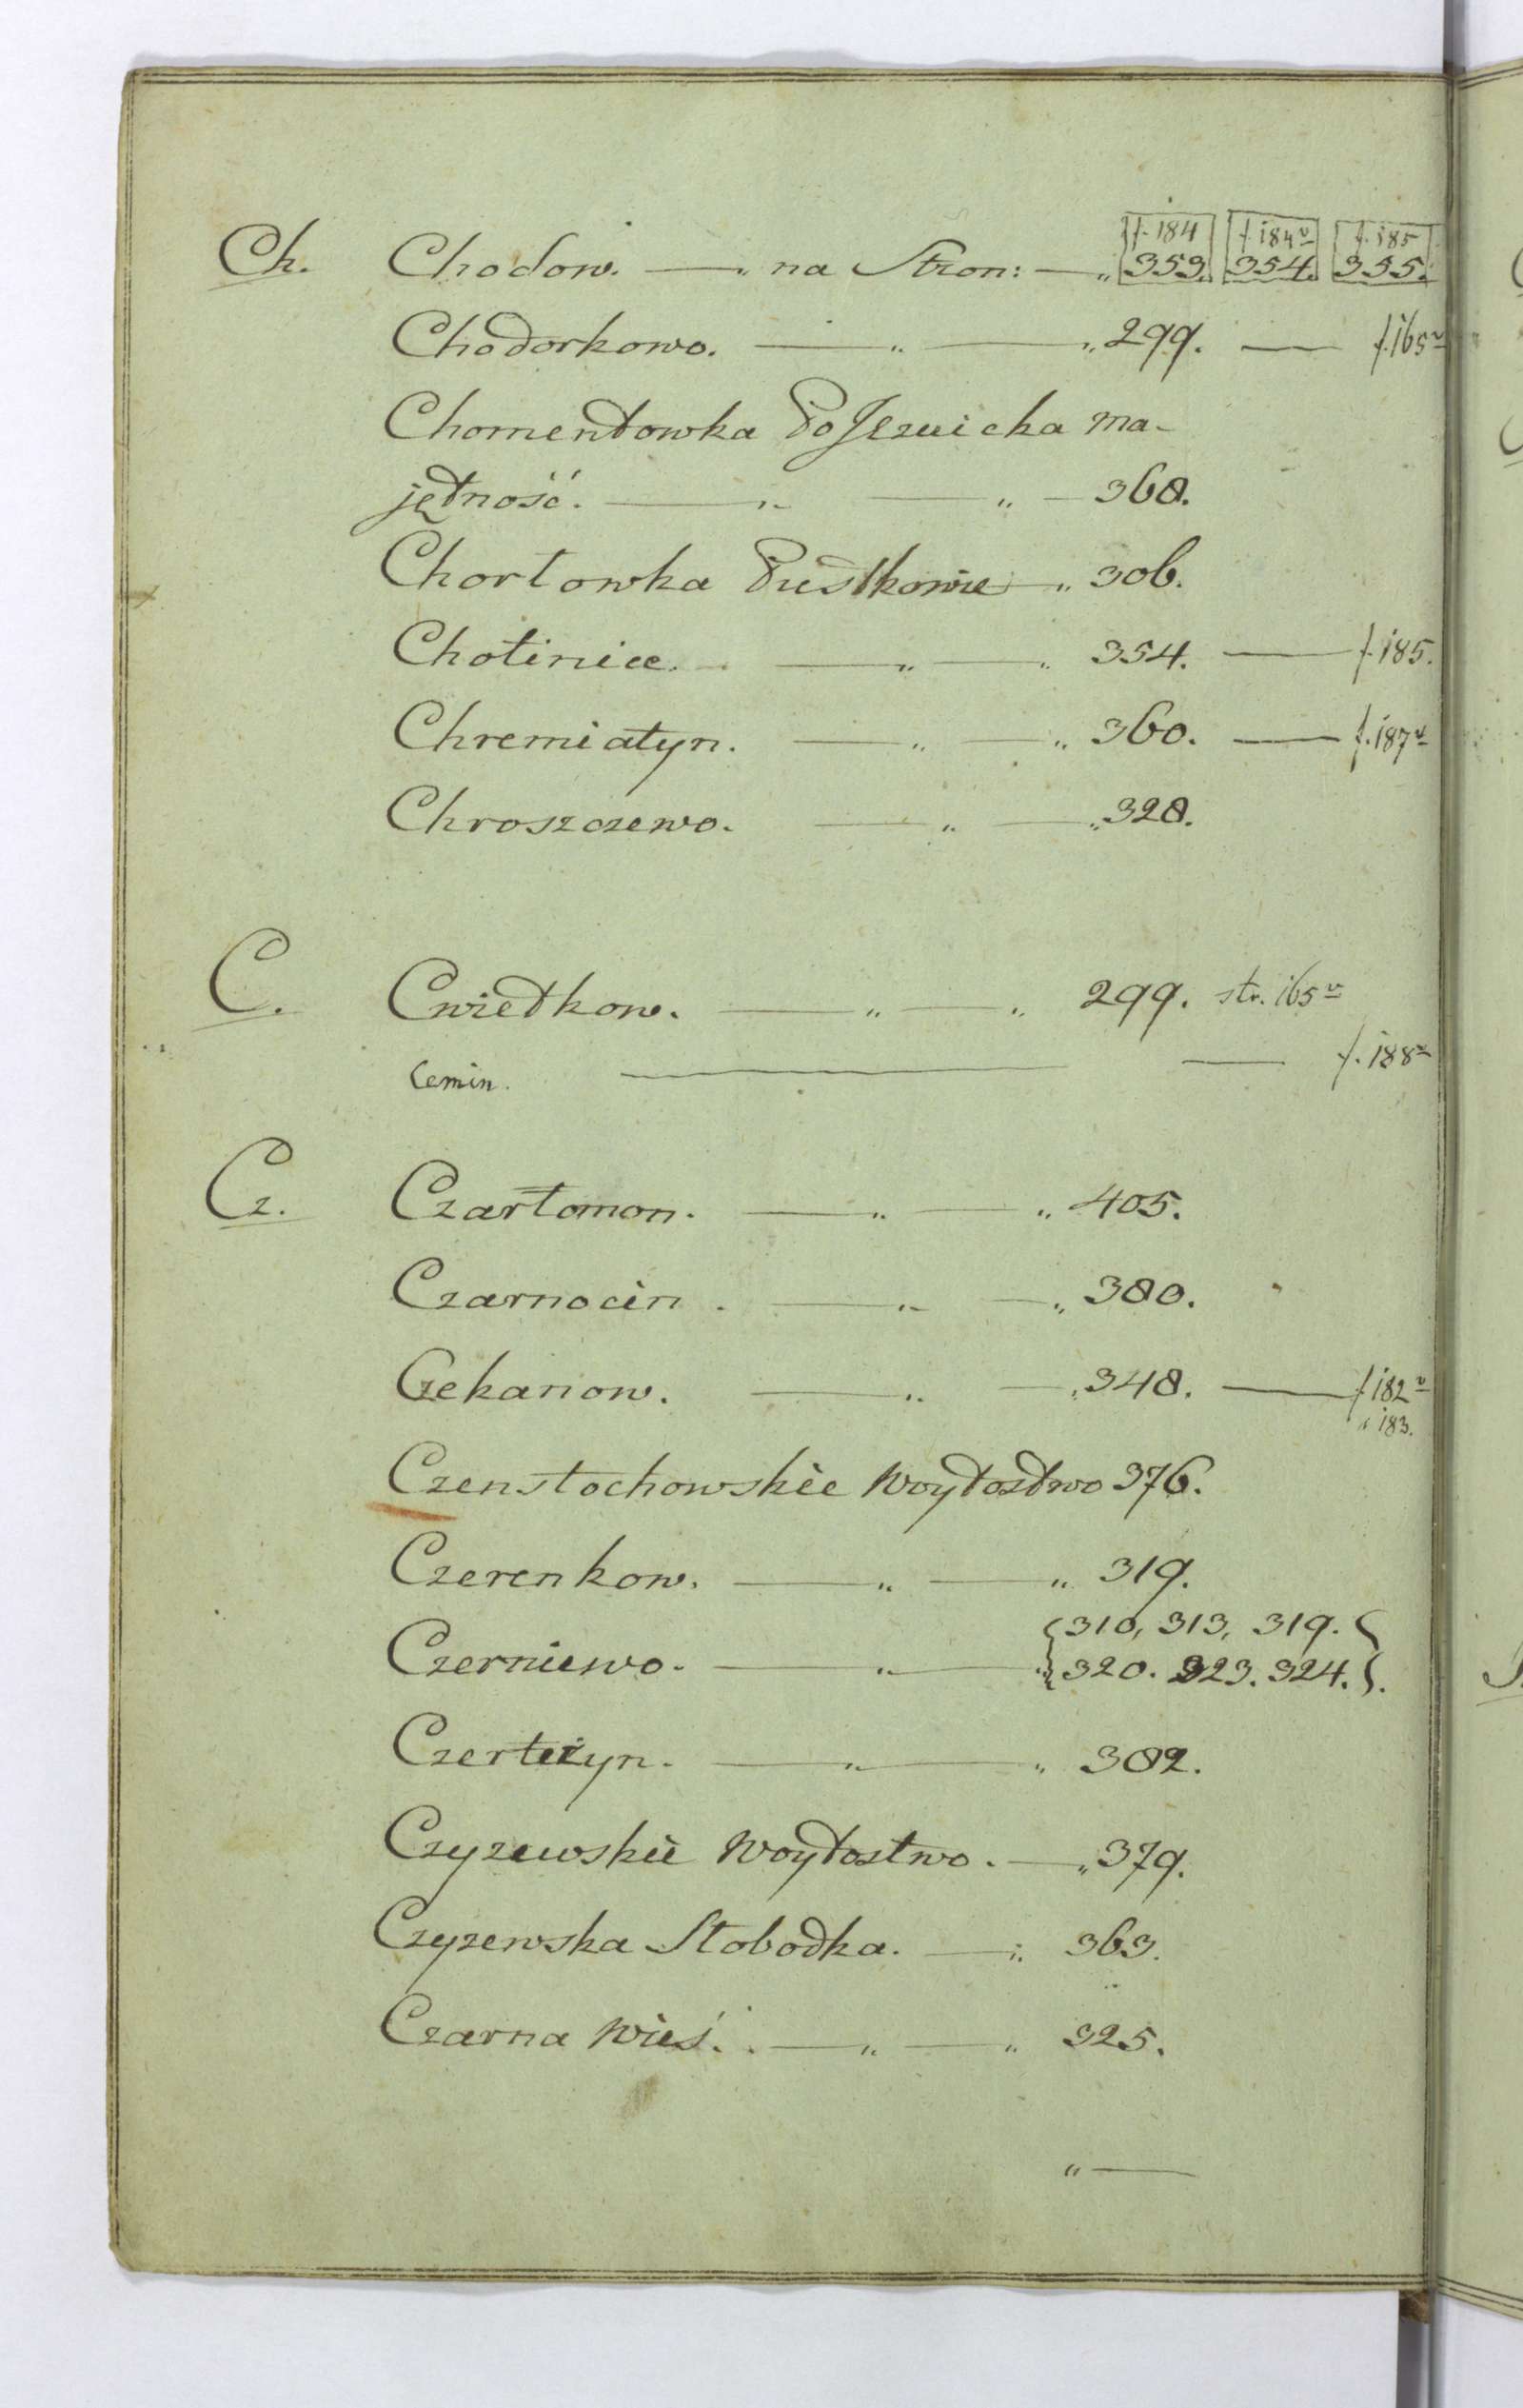 f. 184 f. 184v f. 185
Ch. Chodow. — „ na Stron: — „ 353. 354. 355.
Chodorkowo. — „ — „ 299. — f. 165v
Chomentowka PoJezuicka ma-
jętność. — „ — „ — 368.
Chortowka Pustkowie — „ 306.
Chotinice. — „ — „ 354. — f. 185.
Chremiatyn. — „ — „ 360. — f. 187v
Chroszczewo. — „ — „ 328.
C. Cwietkow. — „ — „ 299. str. 165v
Cemin. — — f. 188v
Cz. Czartomon. — „ — „ 405.
Czarnocin. — „ — „ 380.
Czekanow. — „ — „ 348. — f. 182v
„ 183.
Czenstochowskie Woytostwo 376.
Czerenkow. — „ — „ 319.
{310, 313, 319.}
Czerniewo. — „ — „ {320. 323. 324.}.
Czerteżyn. — „ — „ 382.
Czyzewskie Woytostwo. — „ 379.
Czyzewska Słobodka. — „ 363.
Czarna Wieś. — „ — „ 325.
„ —